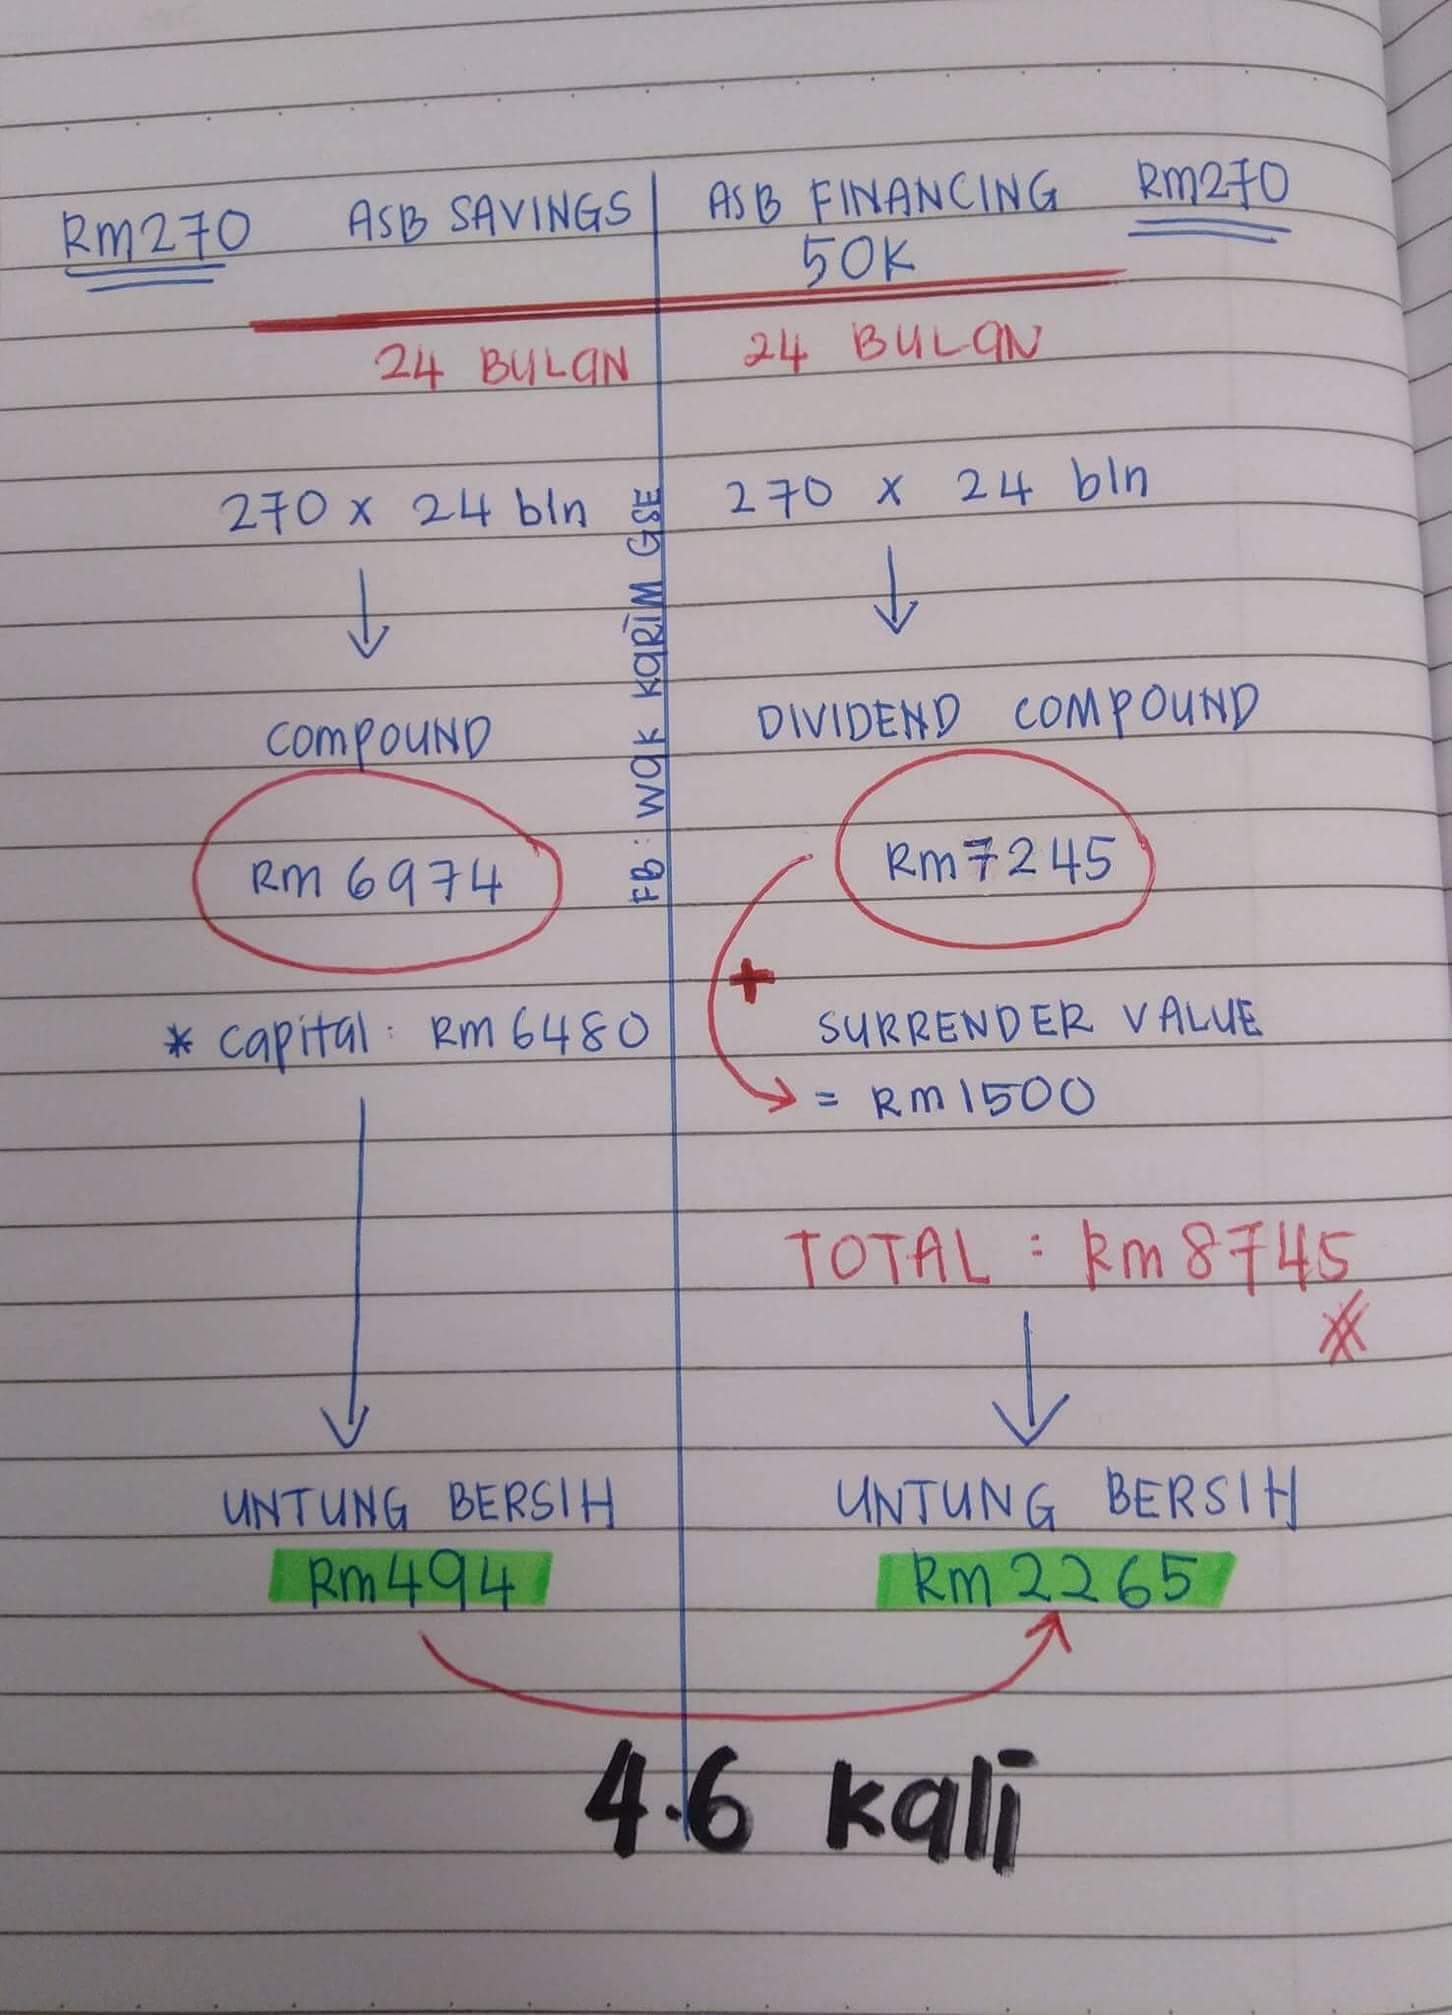 RM270 ASB SAVINGS
24 BULAN
270 x 24 bln
COMPOUND
RM 6974
* Capital: RM 6480
UNTUNG BERSIH
RM494
FB: Wak Karim GSE
ASB FINANCING RM270
50K
24 BULAN
270 x 24 bln
DIVIDEND COMPOUND
RM7245
+
SURRENDER VALUE
= RM1500
TOTAL : RM8745
UNTUNG BERSIH
RM2265
4.6 kali